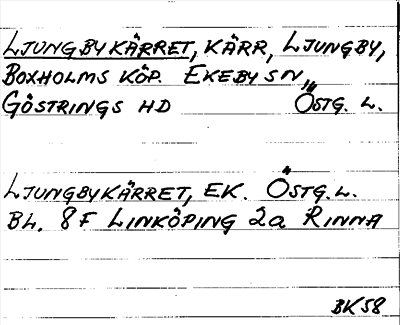 LJUNGBYKÄRRET, KÄRR, LJUNGBY,
BOXHOLMS KÖP. EKEBY SN,
GÖSTRINGS HD ÖSTG. L.
LJUNGBYKÄRRET, EK. ÖSTG. L.
BL. 8F LINKÖPING 2a RINNA
BK58